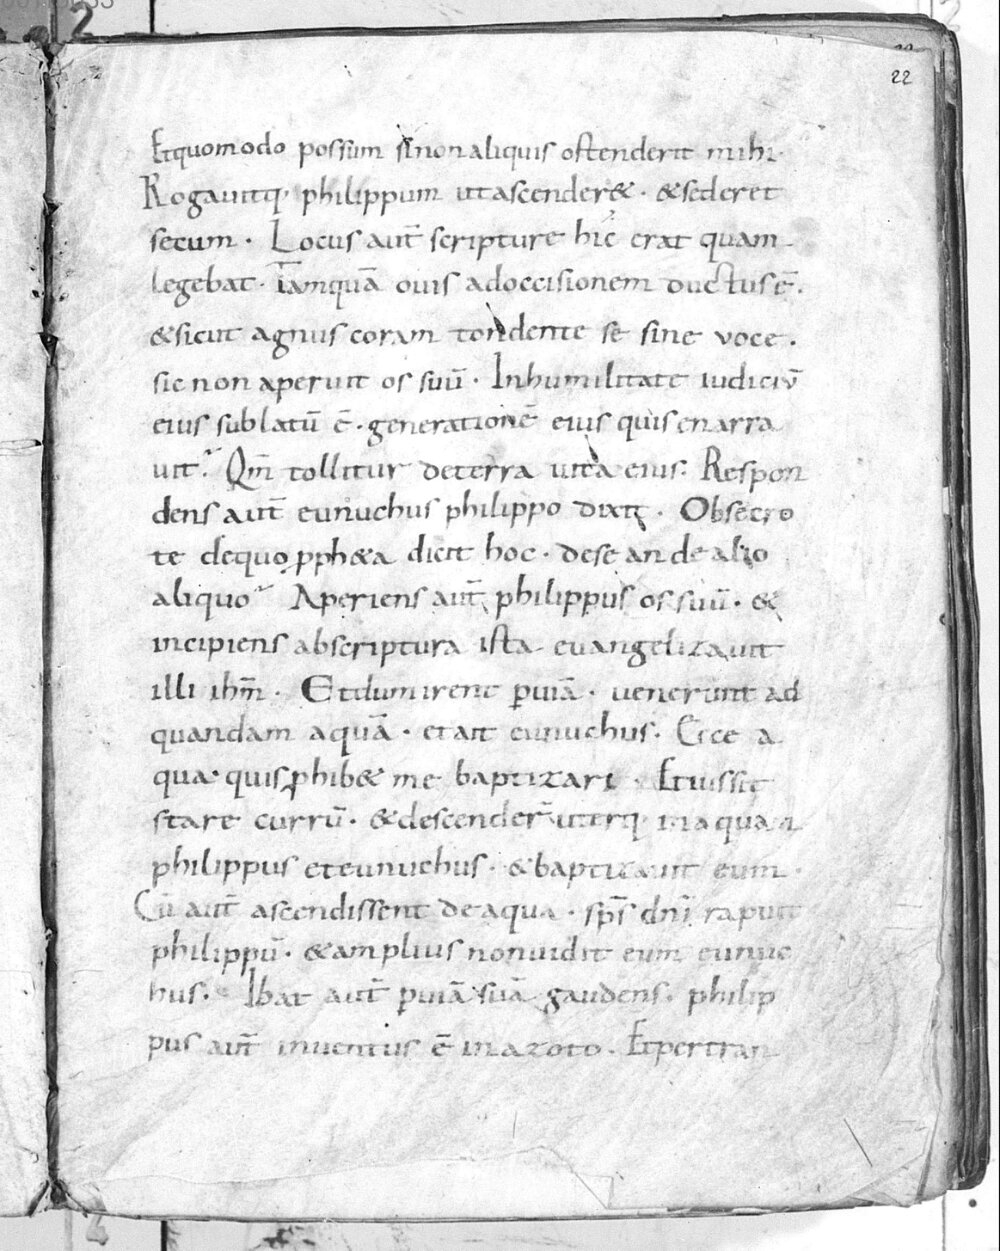 22
Et quomodo possum si non aliquis ostenderit mihi·
Rogavitq· philippum ut ascender&· & sederet
secum· Locus aut̄ scripture hic erat quam
legebat· Tamquā ovis ad occisionem ductus ē·
& sicut agnus coram tondente se sine voce·
sic non aperuit os suū· In humilitate iudiciū
eius sublatū ē· generationē eius quis enarra
vit? Qm̄ tollitur de terra vita eius· Respon
dens aut̄ eunuchus philippo dixit· Obsecro
te de quo pph&a dicit hoc· de se an de alio
aliquo? Aperiens aut̄ philippus os suū· &
incipiens ab scriptura ista evangelizavit
illi ihm̄· Et dum irent p viā· venerunt ad
quandam aquā· et ait eunuchus· Ecce a
qua· quis phib& me baptizari· Et iussit
stare currū· & descender̄ uterq· in aquam
philippus et eunuchus· & baptizavit eum·
Cū aut̄ ascendissent de aqua· sp̄s dn̄i rapuit
philippū· & amplius non vidit eum eunuc
hus· Ibat aut̄ p viā suā gaudens· philip
pus aut̄ inventus ē in azoto· Et pertran